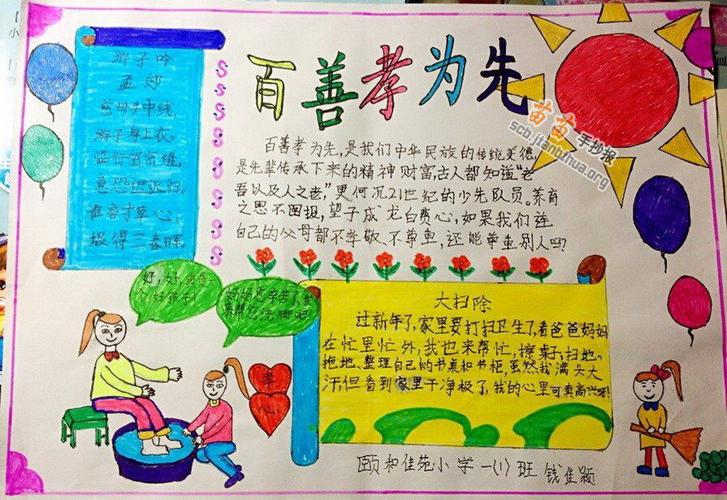 百善孝为先
游子吟
孟郊
慈母手中线，
游子身上衣。
临行密密缝，
意恐迟迟归。
谁言寸草心，
报得三春晖。
百善孝为先，是我们中华民族的传统美德，
是先辈传承下来的精神财富古人都知道“老
吾以及人之老”，更何况21世纪的少先队员。养育
之恩不图报，望子成龙白费心，如果我们连
自己的父母都不孝敬、不尊重，还能尊重别人吗？
好，好，真是一
个好孩子！
妈妈您辛苦了，我
来帮您洗脚吧！
孝
心
大扫除
过新年了，家里要打扫卫生了，看爸爸妈妈
在忙里忙外，我也来帮忙，擦桌子，扫地。
拖地、整理自己的书桌和书柜，虽然我满头大
汗，但看到家里干净极了，我的心里可真高兴呀！
颐和佳苑小学一（1）班 钱佳颖
苗苗手抄报
scb.jianbihua.org